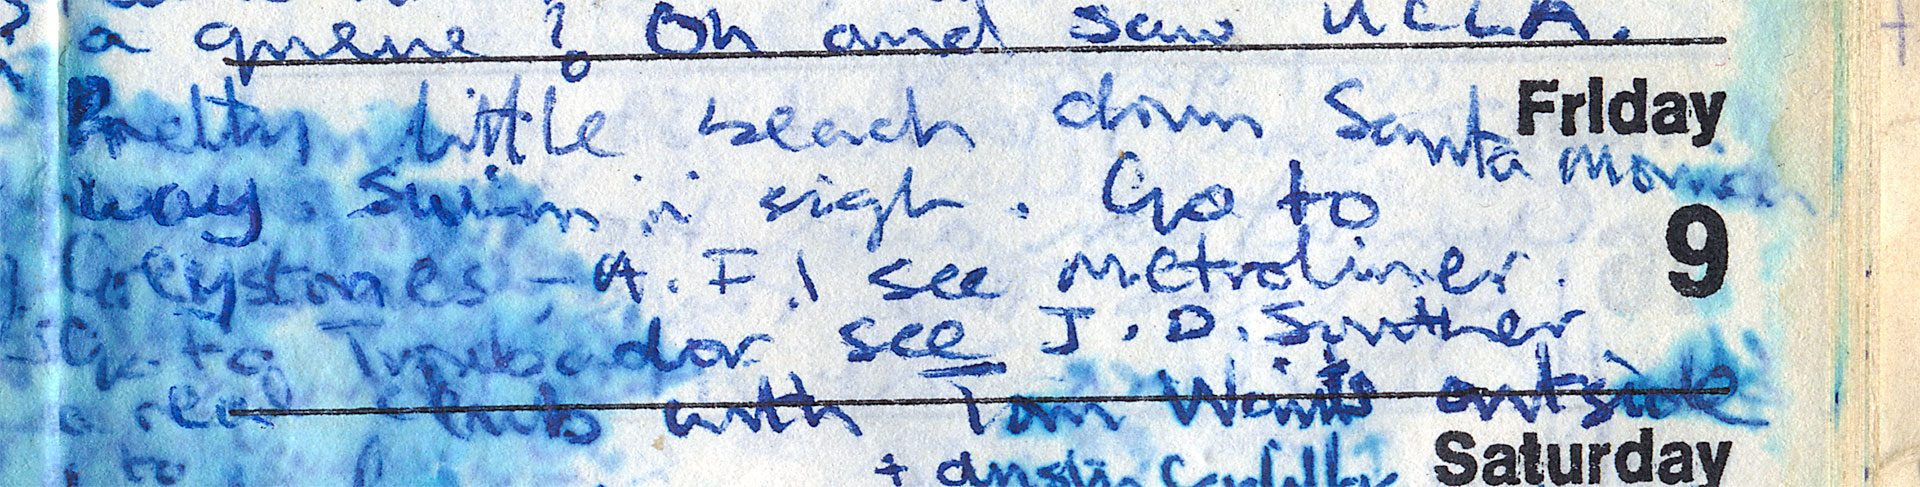 a queue? Oh and saw UCLA.
Friday
Pretty little beach down Santa Monica
way. Swim in sigh. Go to
9
Greystones - A.F.I see Metroliner.
Go to Troubador see J.D. Souther
a real club with Tom Waits outside
Saturday
+ drivin Cadillac
to